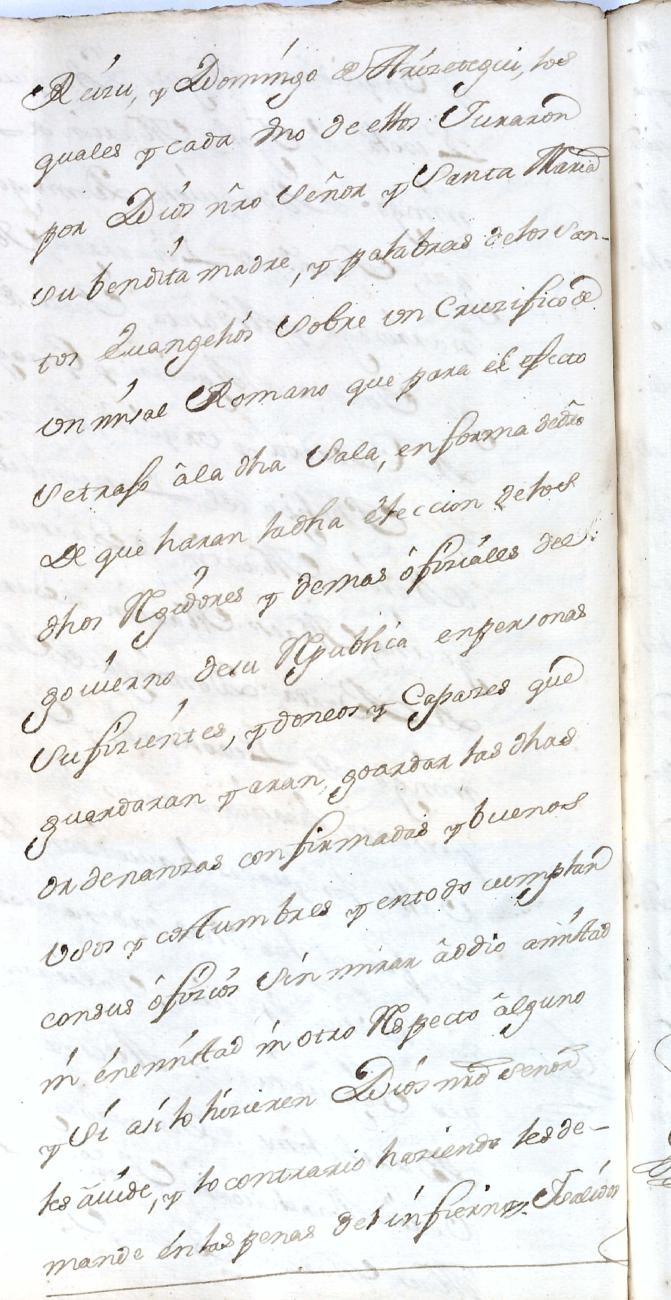 Ruizu, y Domíngo de Arízetegui, los
quales y cada vno de ellos Juraron
por Diós nr̃o Señor y Santa María
su bendíta madre, y palabras delos San-
tos Euangelíos Sobre vn Cruzifico de
vn mísal Romano que para el efecto
Setrajo âla dha Sala, enforma dedr̃o
De que haran ladha élección delos
dhos Regidores y demas ôfiziáles del
gouíerno desu Republica enpersonas
Sufizíentes, ydoneos y Capazes que
guardaran yaran, goardar las dhas
ordenanzas confirmadas y buenos
vsos y costumbres y entodo cumplan
consus ôfizíos Sín mirar âddio amístad
ní énemístad ní otro Respecto âlguno
y Sí así lo hízieren Díos nrõ señor
les âiude, y lo contrario haziendo les de-
mande én las penas del ínfierno,